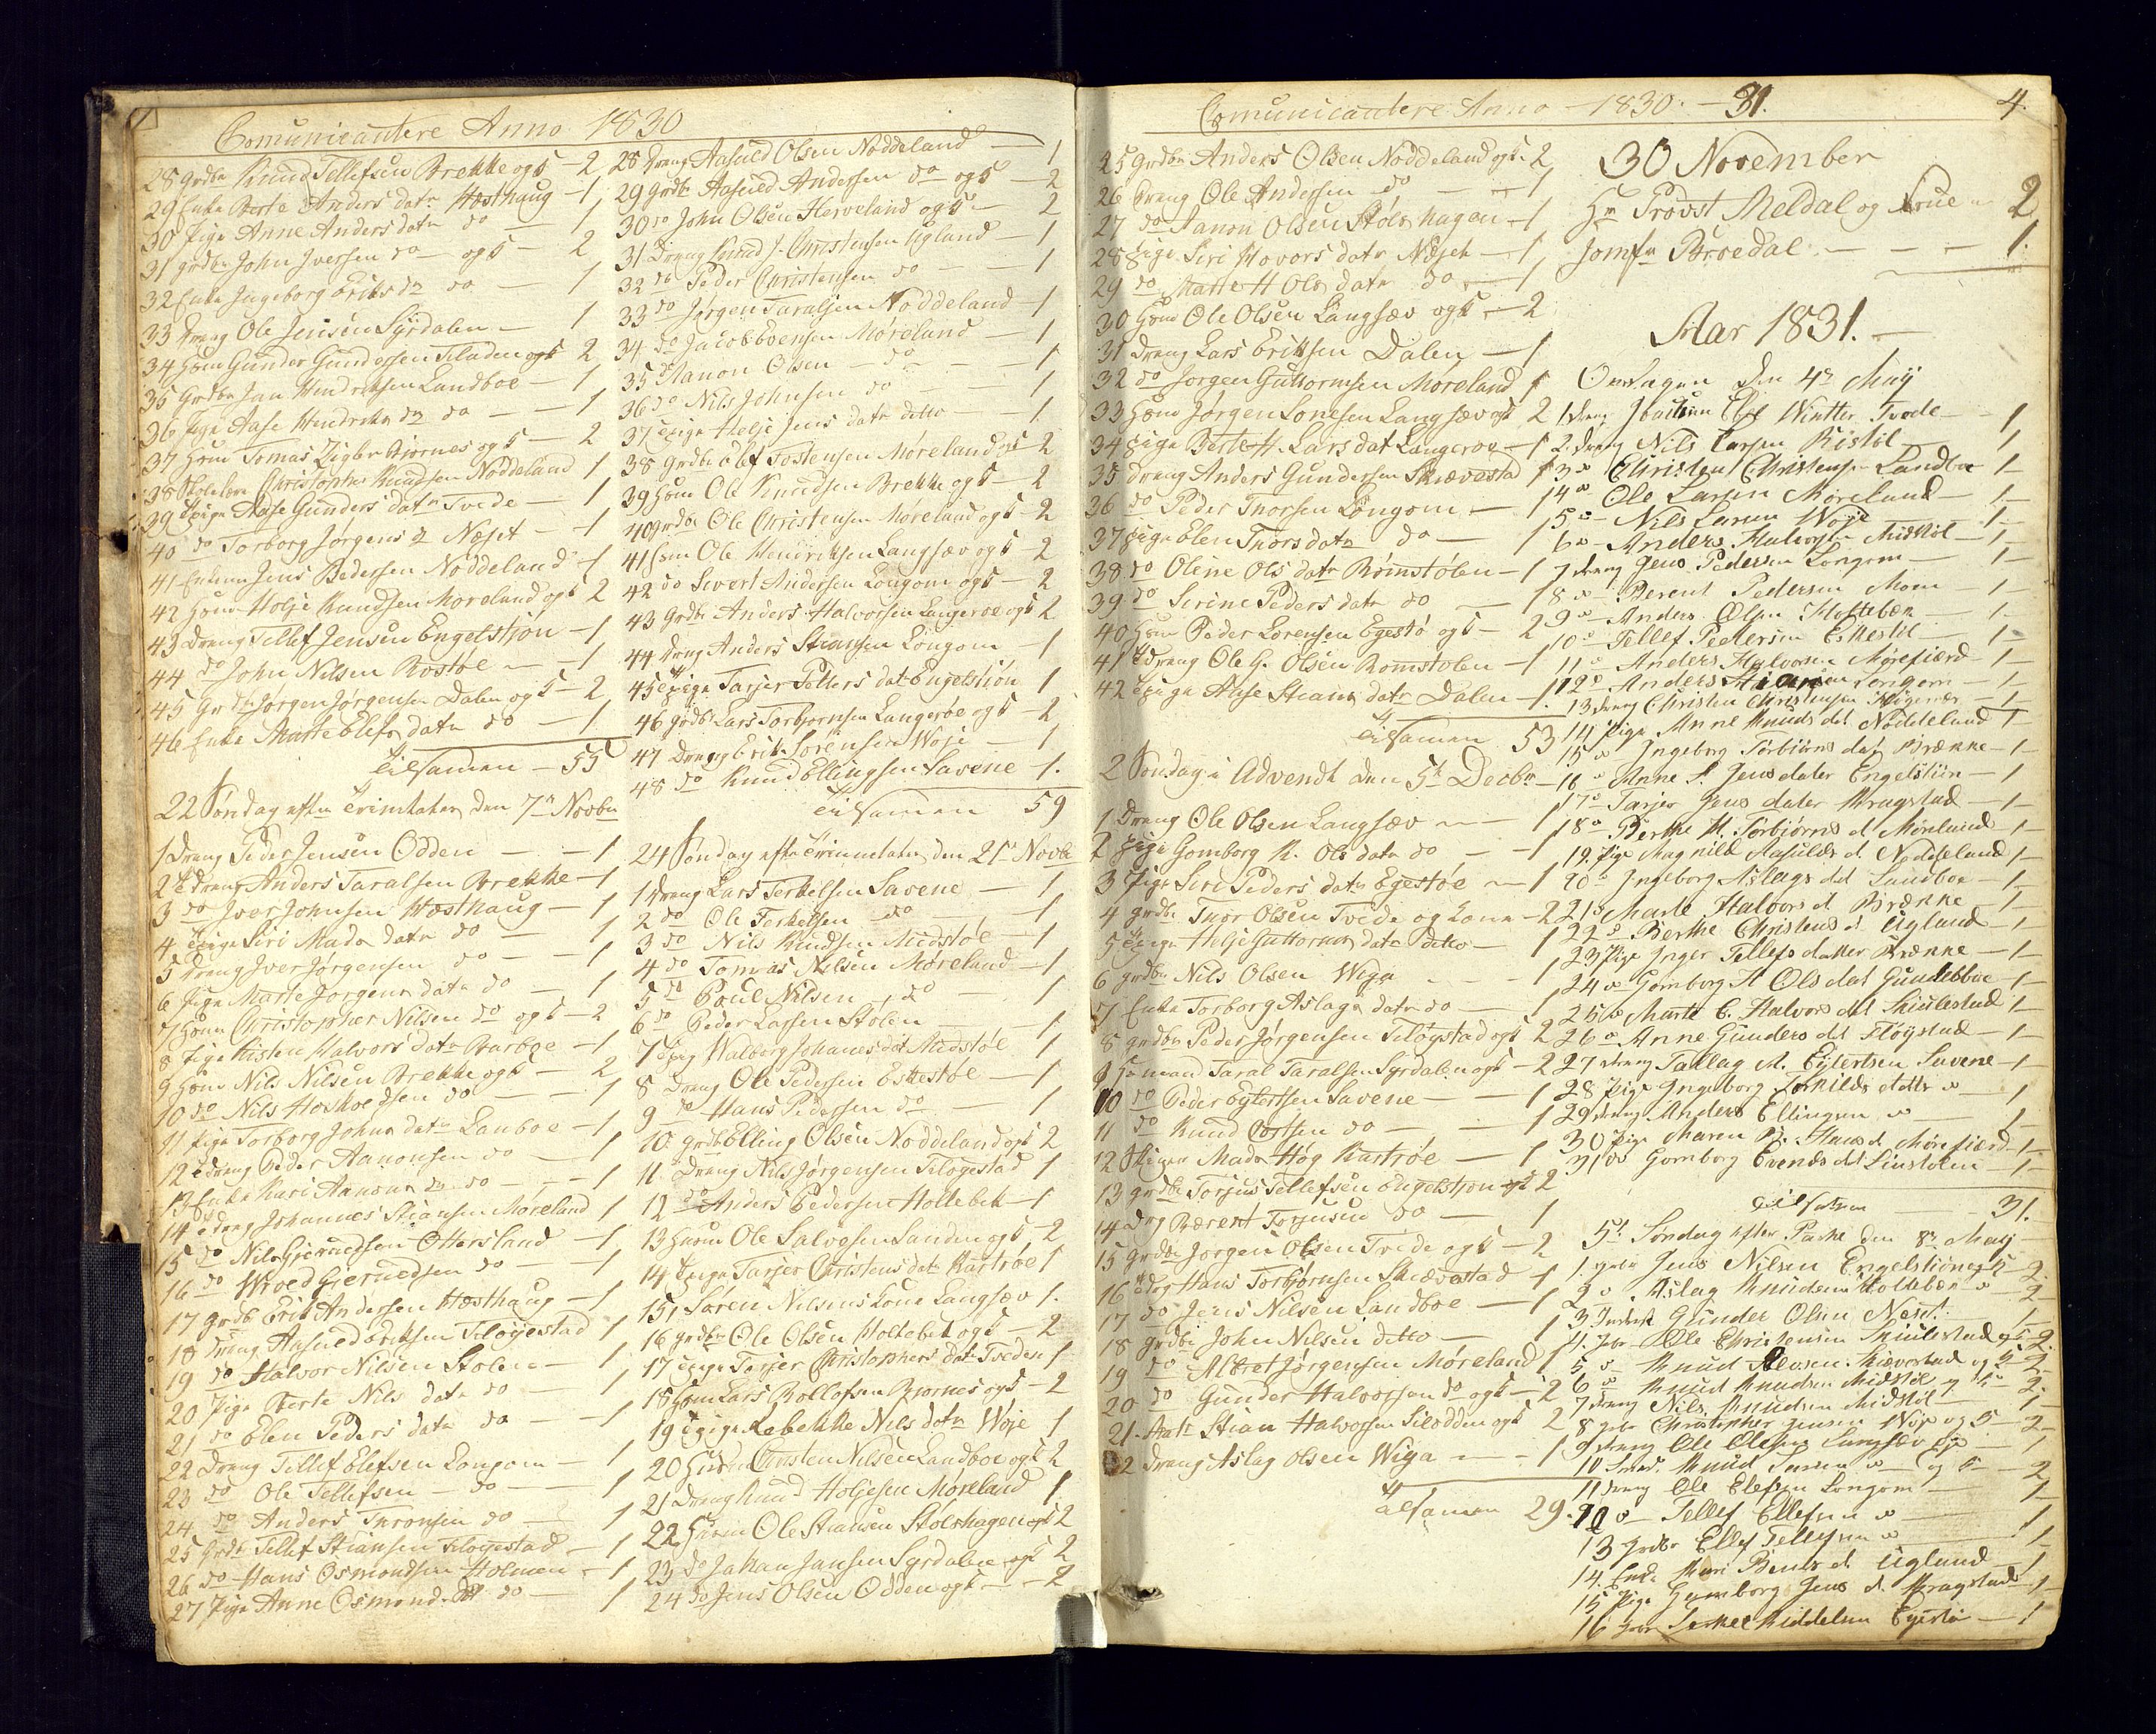 Comunicantere Anno 1830
28 Grdbr Knud Tellefsen Brekke og K - 2
29 Enke Berte Anders datr Hæsthaug - 1
30 Pige Anne Anders datr do - 1
31 Grdbr John Iversen do - og K - 2
32 Enke Ingeborg Eriks dr do - 1
33 Dreng Ole Jensen Syrdalen - 1
34 Gunder Gundersen Fladen og K 2
35 Grdbr Jan Hendriksen Landboe - 1
36 Pige Aase Hendriks dr do - 1
37 Tomas Bjørnes og K - 2
38 Christopher Knudsen Noddeland 1
39 Pige Aase Gunders datr Tvede - 1
40 do Torborg Jørgens dr Næset - 1
41 Jens Pedersen Noddeland - 1
42 Holje Knudsen Moreland og K 2
43 Dreng Tellef Jensen Engelstjøn - 1
44 do John Nilsen Rostøe - 1
45 Grdbr Jørgen Jørgensen Dalen og K - 2
46 Enke Marte Elefs datr do - 1
Tilsamen - 55
22 Søndag efter Trinitatis den 7de Novbr
1 Dreng Peder Jensen Odden - 1
2 Dreng Anders Taralsen Brekke - 1
3 do Iver Johnsen Hæsthaug - 1
4 Pige Siri Mads datr do - 1
5 Dreng Iver Jørgensen do - 1
6 Pige Marte Jørgens datr do - 1
7 Christopher Nilsen do og K - 2
8 Pige Kisten Halvors datr Barboe - 1
9 Nils Nilsen Brekke og K - 2
10 do Nils do - 1
11 Pige Torborg Johns datr Lanboe - 1
12 Dreng Peder Aanonsen do - 1
13 Enke Kari Aanons dr do - 1
14 Dreng Johannes Stiansen Møreland 1
15 do Nils Gjeruldsen Ottersland - 1
16 do Wroed Gjeruldsen do - 1
17 Grdb Erik Andersen Hæsthaug - 1
18 Dreng Aasuld Eriksen Fløyestad 1
19 do Halvor Nilsen Stølen - 1
20 Pige Berte Nils datr do - 1
21 do Elen Peders datr do - 1
22 Dreng Tellef Elefsen Longom - 1
23 do Ole Tellefsen - do - 1
24 do Anders Thronsen do - 1
25 Grdb Tellef Stiansen Fløgestad - 1
26 do Hans Osmondsen Holmen - 1
27 Pige Anne Osmond dtr do - 1
28 Dreng Aasuld Olsen Noddeland - 1
29 Grdb Aasuld Andersen do og K - 2
30 do John Olsen Herveland og K - 2
31 Dreng Knud J. Christensen Ugland - 1
32 do Peder Christensen do - 1
33 do Jørgen Taralsen Noddeland - 1
34 do Jacob Evensen Møreland - 1
35 do Aanon Olsen - do - 1
36 do Nils Johnsen do - 1
37 Pige Helje Jens datr ditto - 1
38 Grdbr Elef Tostensen Møreland og K 2
39 Ole Knudsen Brekke og K - 2
40 Grdbr Ole Christensen Moreland og K - 2
41 Ole Hendriksen Langsæv og K - 2
42 do Sivert Andersen Longom og K - 2
43 Grdbr Anders Halvorsen Langeroe og K 2
44 Dreng Anders Stiansen Longom - 1
45 Pige Tarjer Pellers dat Engelstiøn 1
46 Grdbr Lars Torbjørnsen Langeroe og K - 2
47 Dreng Erik Sørensen Woje - 1
48 do Knud Ellingsen Savene - 1.
Tilsamen 59
24 Søndag efter Trinitatis den 21de Novbr
1 Dreng Lars Terkelsen Savene - 1
2 do Ole Terkelsen do - 1
3 do Nils Knudsen Midstøl - 1
4 do Tomas Nilsen Møreland - 1
5 do Poul Nilsen do - 1
6 do Peder Larsen Stølen - 1
7 Pige Walborg Johanes dat Midstøl 1
8 Dreng Ole Pedersen Eskestøl - 1
9 do Hans Pedersen do - 1
10 Grdb Elling Olsen Noddeland og K 2
11 Dreng Nils Jørgensen Fløgestad 1
12 do Anders Pedersen Holtebek - 1
13 Ole Salvesen Sanden og K - 2
14 Pige Tarjer Christens dat Kastrøe 1
15 Søren Nilsens Kone Langsæv 1.
16 Grdbr Ole Olsen Holtebek og K - 2
17 Pige Tarjer Christophers dat Tveden 1
18 Lars Rollefsen Bjornes og K - 2
19 Pige Rebekke Nils datr Woje 1
20 Christen Nilsen Landboe og K 2
21 Dreng Knud Holjesen Møreland 1
22 Ole Stiansen Stølshagen og K 2
23 do Johan Jansen Syrdalen og K 2
24 do Jens Olsen Odden og K - 2
Comunicantere Anno - 1830. - 31.
4.
25 Grdbr Anders Olsen Noddeland og K 2
26 Dreng Ole Andersen do - 1
27 do Aanon Olsen Stølshagen - 1
28 Pige Siri Hovors datr Næset - 1
29 do Marte H Ols datr do - 1
30 Ole Olsen Langsæv og K - 2
31 Dreng Lars Eriksen Dalen - 1
32 do Jorgen Guttormsen Møreland 1
33 Jørgen Lonesen Langsæv og K 2
34 Pige Berte H. Lars dat Langeroe - 1
35 Dreng Anders Gundersen Skiævestad 1
36 do Peder Thorsen Longom - 1
37 Pige Elen Thors datr do - 1
38 do Oline Ols datr Rømstølen - 1
39 do Serine Peders datr do - 1
40 Peder Lorensen Egestø og K - 2
41 Dreng Ole G. Olsen Romstolen - 1
42 Pige Aase Stians datr Dalen - 1.
Tilsamen 53
2 Søndag i Advendt den 5te Decbr
1 Dreng Ole Olsen Langsæv - 1
2 Pige Gomborg K. Ols datr do - 1
3 Pige Siri Peders datr Egestøe - 1
4 Grdbr Thor Olsen Tvede og Kone - 2
5 Pige Helje Guttorms datr ditto - 1
6 Grdbr Nils Olsen Wiga - 1
7 Enke Torborg Aslags datr do - 1
8 Grdbr Peder Jørgensen Fløystad og K 2
9 Taral Taralsen Syrdalen og K - 2
10 do Peder Eylertsen Savene - 1
11 do Knud do - 1
12 Mads Høg Kastrøe - 1
13 Grdbr Torjus Tellefsen Engelstjon og K 2
14 Drg Bærent Torjusen do - 1
15 Grdbr Jorgen Olsen Tvede og K - 2
16 Drg Hans Torbjørnsen Skiævestad - 1
17 do Jens Nilsen Landboe - 1
18 Grdbr John Nilsen ditto - 1
19 do Albret Jørgensen Møreland 1
20 do Gunder Halvorsen do og K - 2
21. Stian Halvorsen Silodden og K 2
22 Dreng Aslag Olsen Wiga - 1
Tilsamen 29.
30 November
Hr Provst Meldal og Frue - 2
Jomfr Brredal - 1.
Aar 1831. -
Onsdagen den 4de May
1 Dreng Wintter Tvede - 1
2. Dreng Nils Larsen Ristøl - 1
3 do Christen Christensen Landboe 1
4 do Ole Larsen Møreland - 1
5 do Nils Larsen Woje - 1
6 do Anders Halvorsen Midstøl - 1
7 Dreng Jens Pedersen Longom - 1
8 do Berent Pedersen Moen - 1
9 do Anders Olsen Holtebæk - 1
10 do Tellef Pedersen Eskestøl - 1
11 do Anders Halvorsen Mørefiærd - 1
12 do Anders Stiansen Longom - 1
13 Dreng Christen Christensen - 1
14 Pige Anne Knuds dat Noddeland 1
15 do Ingeborg Torbiørns dat Brække - 1
16 do Anne S. Jens dater Engelstiøn - 1
17 do Tarjer Jens dater Kragstad - 1
18 do Berthe M. Torbiørns d. Møreland - 1
19. Pige Magnild Aasulds d. Noddeland 1
20 do Ingeborg Aslags dat Landboe - 1
21 do Marte Halvors d. Brække - 1
22 do Berthe Christens d. Ugland - 1
23 Pige Inger Tellefs datter Brække - 1
24 do Gomborg A Ols dat Gundebboe - 1
25 do Marte C. Halvors dat Skiulestad 1
26 do Anne Gunders dat Fløystad - 1
27 Dreng Tallag M. Eylertsen Savene - 1
28 Pige Ingeborg Torkilds datt do - 1
29 Dreng Anders Ellingsen do - 1
30 Pige Maren Hans d. Mørefiærd 1
31 do Gomborg Evends dat Linstølen 1
Tilsamen - 31.
5te Søndag efter Paske den 8de May
1. Grdbr Jens Nilsen Engelstiøn og K 2
2 do Aslag Knudsen Holtebæk do - 2
3 Gunder Olsen Næset - 1
4. Grdbr Ole Christensen Skiulestad og K 2.
5 do Knud Olevsen Skiævestad og K 2
6 do Knud Knudsen Midstøl og K 2.
7 Dreng Nils Knudsen Midstøl - 1
8 Grdbr Christopher Jensen Woje og K - 2
9 Dreng Ole Olsen Langsæv - 1
10 Knud Jensen do og K - 2
11 Dreng Ole Elefsen Longom - 1
12 do Tellef Ellefsen do - 1
13 Grdbr Ellef Tellefsen do - 1
14. Enke Mari Bents d. Ugland - 1
15 Pige Gomborg Jens d. Kragstad - 1
16 Grdbr Terkel Kiddelsen Egestø - 1